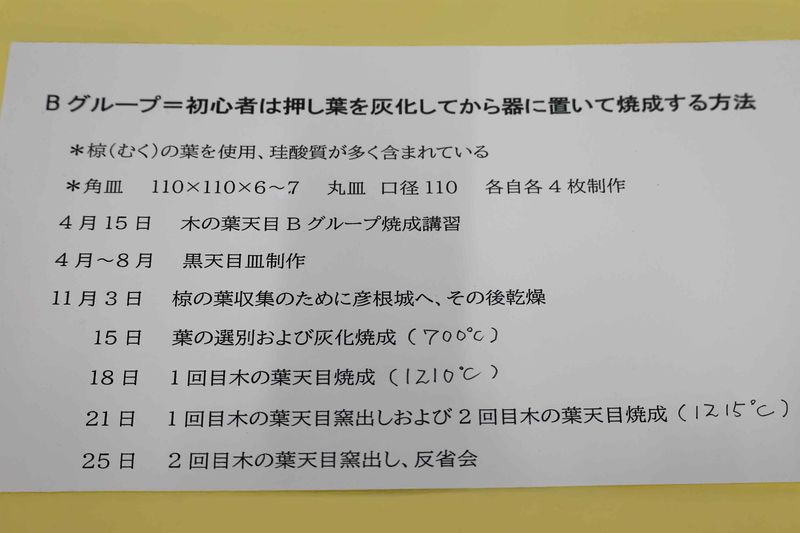 Bグループ=初心者は押し葉を灰化してから器に置いて焼成する方法
*椋(むく)の葉を使用、珪酸質が多く含まれている
*角皿 110×110×6~7 丸皿 口径110 各自各4枚制作
4月15日 木の葉天目Bグループ焼成講習
4月~8月 黒天目皿制作
11月3日 椋の葉収集のために彦根城へ、その後乾燥
15日 葉の選別および灰化焼成(700℃)
18日 1回目木の葉天目焼成(1210℃)
21日 1回目木の葉天目窯出しおよび2回目木の葉天目焼成(1215℃)
25日 2回目木の葉天目窯出し、反省会